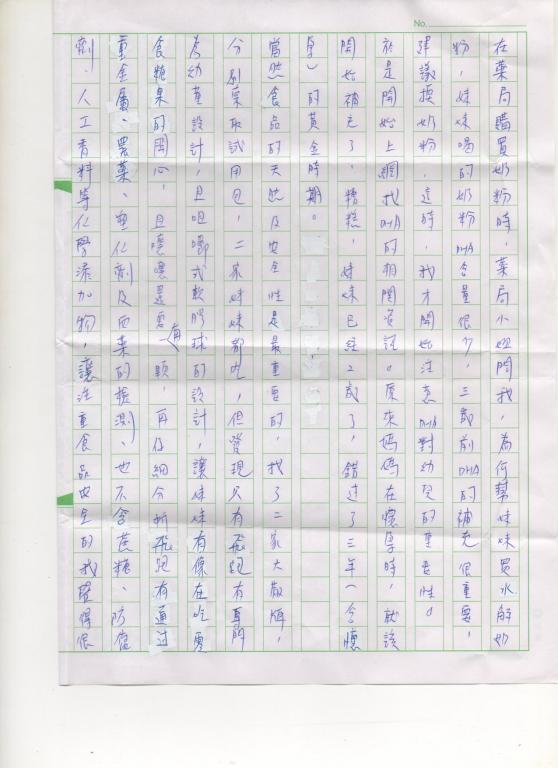 No.
在藥局購買奶粉時，藥局小姐問我，為何幫妹妹買水解奶
粉，妹妹喝的奶粉DHA含量很少，三歲前DHA的補充很重要，
建議換奶粉，這時，我才開始注意DHA對幼兒的重要性。
於是開始上網找DHA的相關資訊。原來媽媽在懷孕時，就該
開始補充了，糟糕，妹妹已經2歲了，錯過了三年（含懷
孕）的黃金時期。
當然食品的天然及安全性是最重要的，找了二家大廠牌，
分別索取試用包，二家妹妹都吃，但發現只有 有專門
為幼童設計，且咀嚼式軟膠球的設計，讓妹妹有像在吃
食糖果的開心，且嚷嚷還要有 顆，再仔細分析 有通過
重金屬、農藥、塑化劑及西藥的檢測、也不含蔗糖、防腐
劑、人工香料等化學添加物，讓注重食品安全的我覺得很